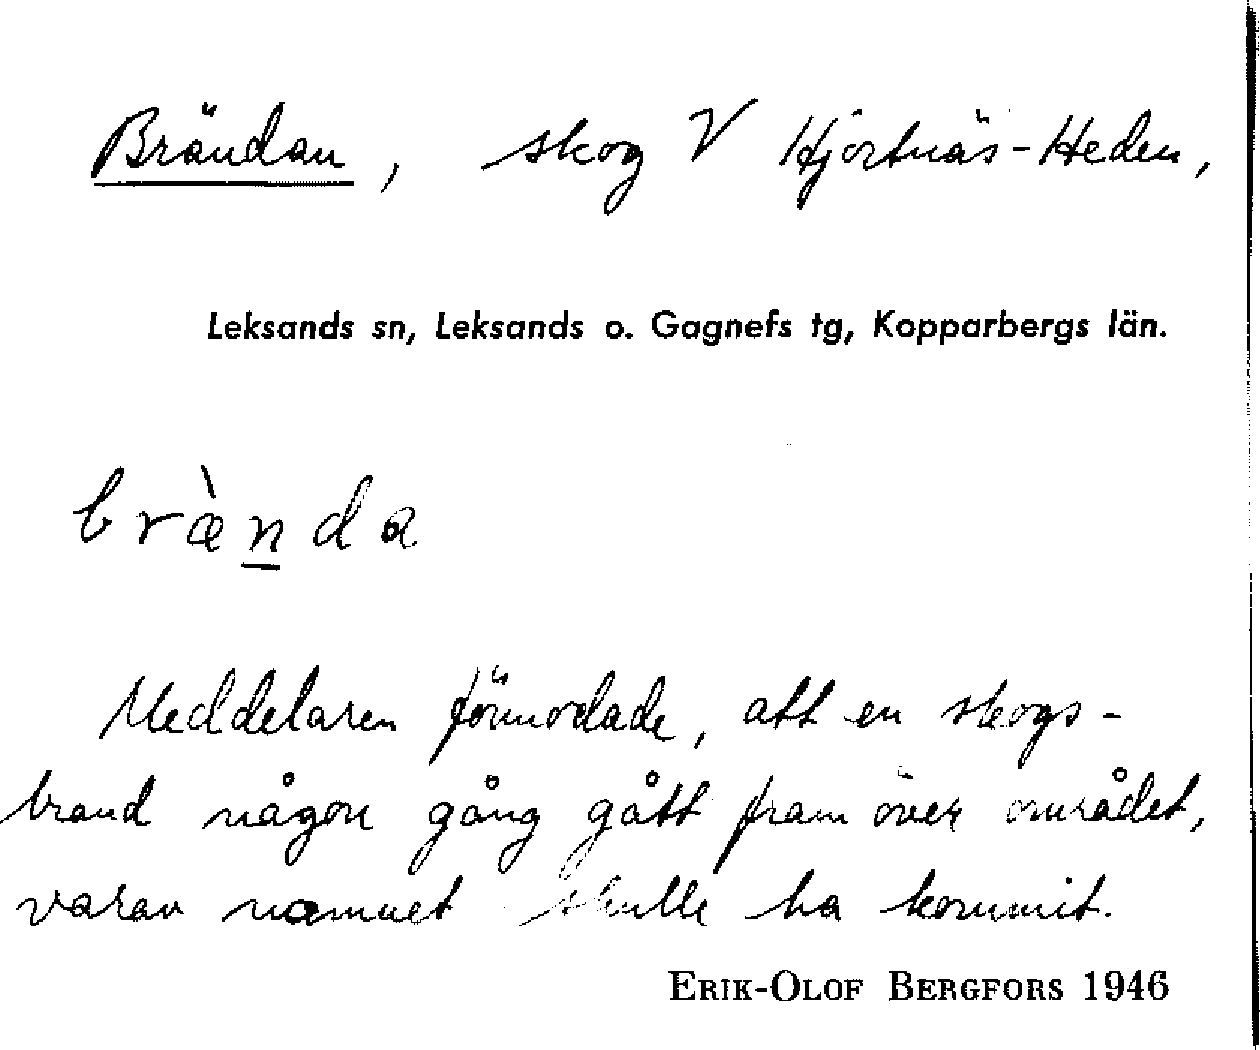 Brändan, skog V Hjortnäs-Heden,
Leksands sn, Leksands o. Gagnefs tg, Kopparbergs län.
bræ̀n̲da
Meddelaren förmodade, att en skogs-
brand någon gång gått fram över området,
varav namnet skulle ha kommit.
ERIK-OLOF BERGFORS 1946